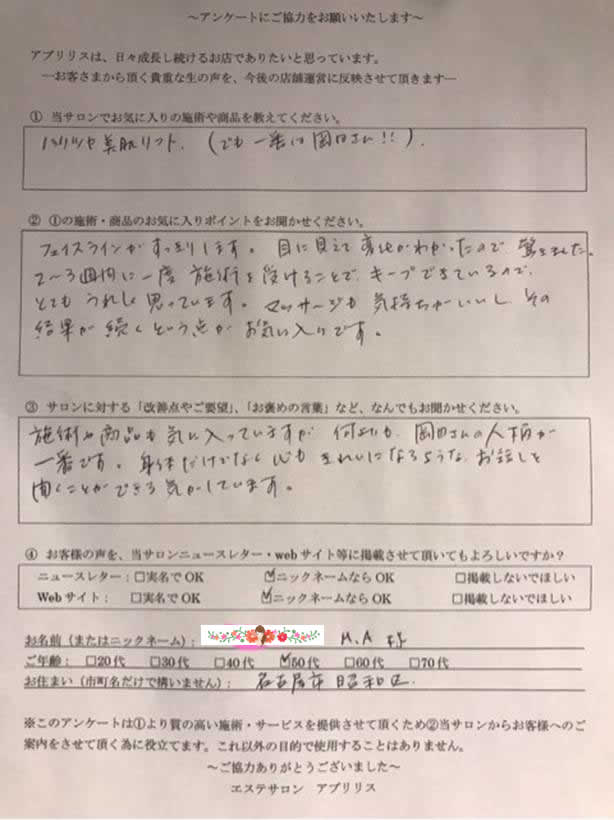 ～アンケートにご協力をお願いいたします～
アプリリスは、日々成長し続けるお店でありたいと思っています。
―お客さまから頂く貴重な生の声を、今後の店舗運営に反映させて頂きます―
① 当サロンでお気に入りの施術や商品を教えてください。
ハリツヤ美肌リフト．（でも一番は岡田さん!!）．
② ①の施術・商品のお気に入りポイントをお聞かせください。
フェイスラインがすっきりします。目に見えて変化がわかったので、驚きました。
2～3週間に一度 施術を受けることで、キープできているので、
とてもうれしく思っています。マッサージも気持ちがいいし、その
結果が続くという点がお気に入りです。
③ サロンに対する「改善点やご要望」、「お褒めの言葉」など、なんでもお聞かせください。
施術や商品も気に入っていますが、何よりも、岡田さんの人柄が
一番です。身体だけでなく心もきれいになるような、お話しを
聞くことができる気がしています。
④ お客様の声を、当サロンニュースレター・webサイト等に掲載させて頂いてもよろしいですか？
ニュースレター：□実名でOK ☑ニックネームならOK □掲載しないでほしい
Webサイト：□実名でOK ☑ニックネームならOK □掲載しないでほしい
お名前（またはニックネーム）： M.A 様
ご年齢：□20代 □30代 □40代 ☑50代 □60代 □70代
お住まい（市町名だけで構いません）：名古屋市 昭和区
※このアンケートは①より質の高い施術・サービスを提供させて頂くため②当サロンからお客様へのご
案内をさせて頂く為に役立てます。これ以外の目的で使用することはありません。
～ご協力ありがとうございました～
エステサロン アプリリス